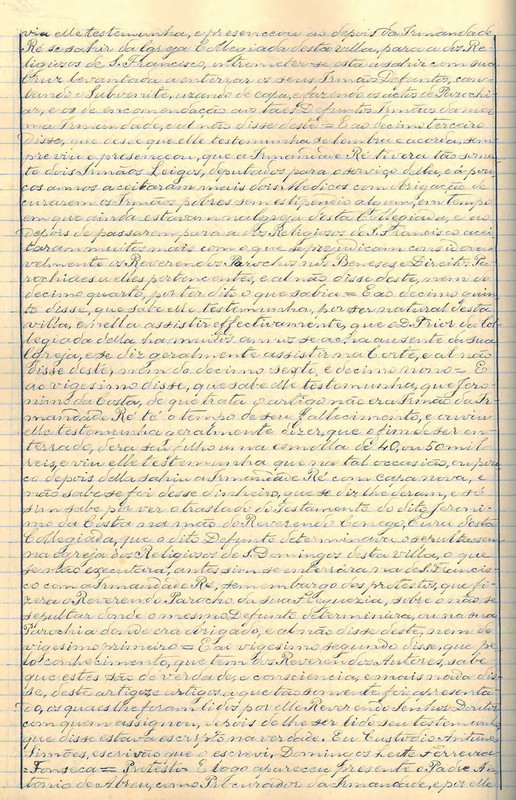 viu elle testemunha, e presenceou ao depois da Irmandade
Ré se sahir da Igreja Collegiada desta villa, para a dos Re-
ligiosos de S. Francisco, intrometer-se esta a sahir com sua
Cruz levantada a enterrar os seus Irmãos Defuntos, can-
tando o Subvenite, uzando de capa, e fazendo os actos de Parochi-
ar, e os de encomendação aos taes Defuntos Irmãos da mes-
ma Irmandade, e al não disse deste = E ao decimo terceiro
disse, que desde que elle testemunha se lembra e acorda, sem-
pre viu e presenceou, que a Irmandade Ré tivera tão somen-
te dois Irmãos Leigos, deputados para o serviço della, e á pou-
cos annos aceitaram mais dois Medicos com obrigação de
curarem os Irmãos pobres sem estipendio algum, em tempo
em que ainda estavam na Igreja desta Collegiada, e ao
depois de passarem para a dos Religiosos de S. Francisco acei-
taram muitos mais com o que se prejudicam considera-
velmente os Reverendos Parochos nos Beneses e Direitos Pa-
rochiaes a elles pertencentes, e al não disse deste, nem do
decimo quarto, por ter dito o que sabia = E ao decimo quin-
to disse, que sabe elle testemunha, por ser natural desta
villa, e nella assistir effectivamente, que o D. Prior da Col-
legiada della ha muitos annos se acha ausente da sua
Igreja, e se diz geralmente assistir na Corte, e al não
disse deste, nem do decimo sexto, e decimo nono = E
ao vigesimo disse, que sabe elle testemunha, que Jero-
nimo da Costa, de que trata o artigo não era Irmão da Ir-
mandade Ré té o tempo de seu fallecimento, e ouviu
elle testemunha geralmente dizer, que a fim de ser en-
terrado, dera seu filho uma esmolla de 40, ou 50 mil
reis, e viu elle testemunha que na tal occasião, ou pou-
co depois della sahiu a Irmandade Ré com capa nova, e
não sabe se foi desse dinheiro, que se diz lhe deram, e só
sim sabe por ver o traslado do testamento do dito Jeroni-
mo da Costa na mão do Reverendo Conego, Cura desta
Collegiada, que o dito Defunto determinára o sepultassem
na Igreja dos Religiosos de S. Domingos desta villa, o que
se não executára, antes sim se enterrára na de S. Francis-
co com a Irmandade Ré, sem embargo dos protestos, que fi-
zera o Reverendo Parocho da sua Freguezia, sobre o não se
sepultar donde o mesmo Defunto determinára, ou na sua
Parochia donde era obrigado, e al não disse deste, nem do
vigesimo primeiro = E ao vigesimo segundo disse, que pe-
lo conhecimento, que tem dos Reverendos Autores, sabe
que estes são de verdade, e consciencia, e mais não dis-
se, deste artigo e artigos a que tão somente foi apresenta-
do, os quaes lhe foram lidos por elle Reverendo Senhor Doutor
com quem assignou, depois de lhe ser lido seu testemunho
que disse estava escripto na verdade. Eu Custodio Antunes
Simões, escrivão que o escrevi, Domingos Leite Ferreira
= Fonseca = Protesto E logo appareceu presente o Padre An-
tonio de Abreu, como Procurador da Irmandade, e por elle